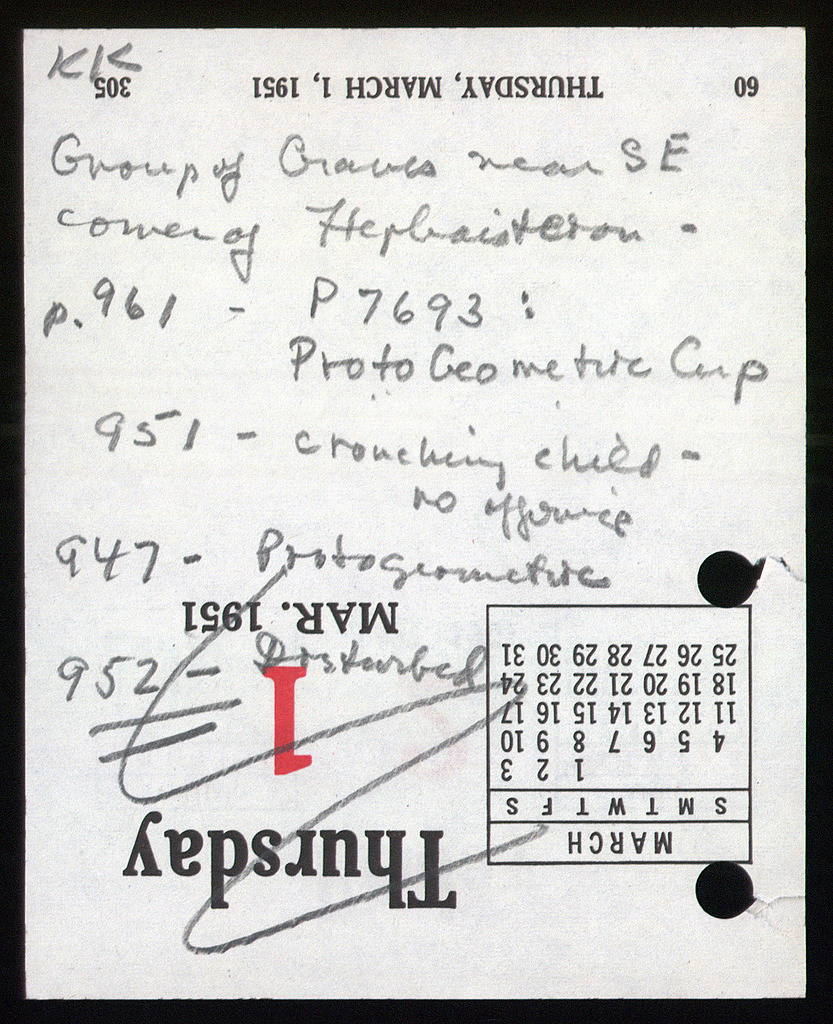 KK
305 THURSDAY, MARCH 1, 1951 60
Group of Graves near SE
corner of Hephaisteion -
p. 961 - P 7693 :
ProtoGeometric Cup
951 - crouching child -
no offering
947 - Protogeometric
MAR. 1951
952 - Disturbed
1
Thursday
MARCH
S M T W T F S
1 2 3
4 5 6 7 8 9 10
11 12 13 14 15 16 17
18 19 20 21 22 23 24
25 26 27 28 29 30 31